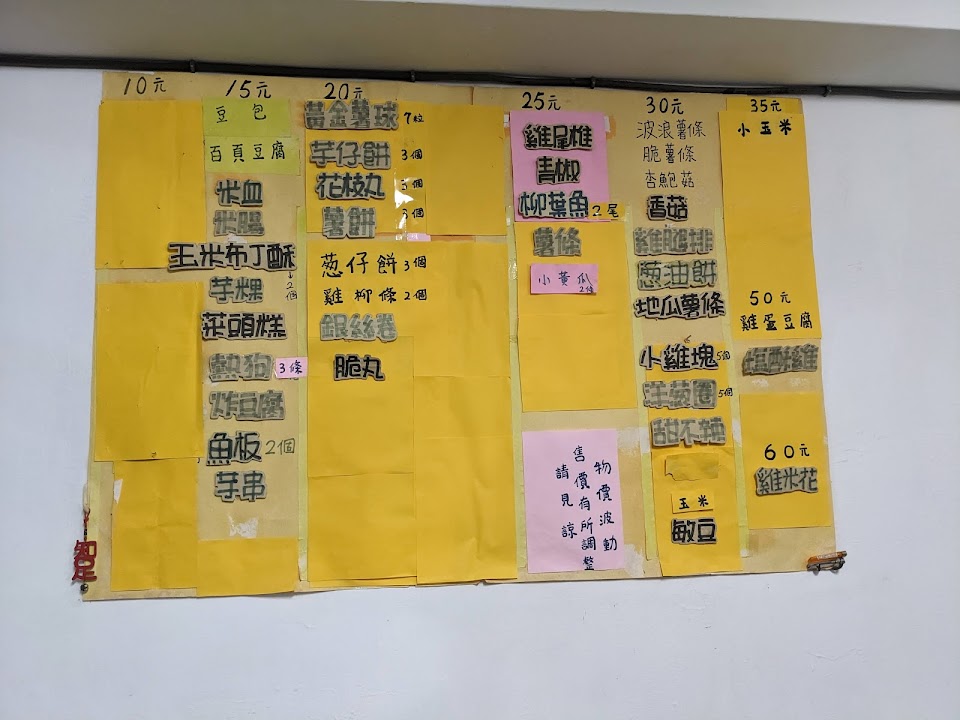 10元
15元
豆包
百頁豆腐
米血
米腸
玉米布丁酥
芋粿 2個
菜頭糕
熱狗 3條
炸豆腐
魚板 2個
芋串
20元
黃金薯球 7粒
芋仔餅 3個
花枝丸 3個
薯餅 3個
葱仔餅 3個
雞柳條 2個
銀絲卷
脆丸
25元
雞尾椎
青椒
柳葉魚 2尾
薯條
小黃瓜 2條
物價波動
售價有所調整
請見諒
30元
波浪薯條
脆薯條
杏鮑菇
香菇
雞腿排
葱油餅
地瓜薯條
小雞塊 5個
洋葱圈 5個
甜不辣
玉米
敏豆
35元
小玉米
50元
雞蛋豆腐
塩酥雞
60元
雞米花
知足